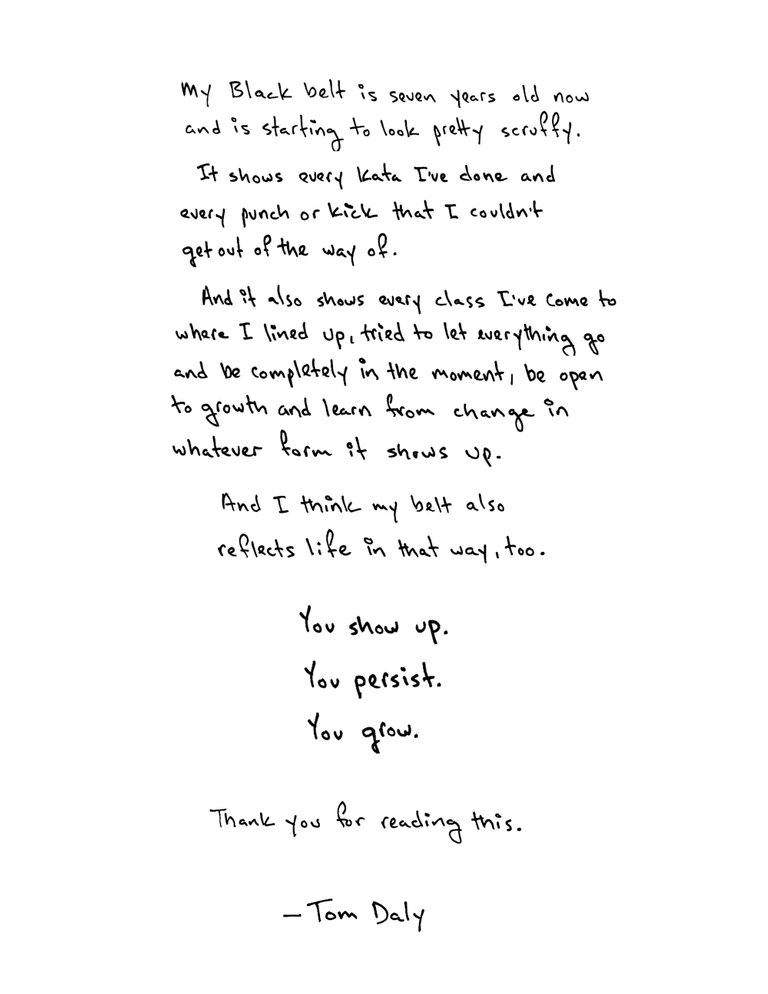 My Black belt is seven years old now
and is starting to look pretty scruffy.
It shows every kata I've done and
every punch or kick that I couldn't
get out of the way of.
And it also shows every class I've come to
where I lined up, tried to let everything go
and be completely in the moment, be open
to growth and learn from change in
whatever form it shows up.
And I think my belt also
reflects life in that way, too.
You show up.
You persist.
You grow.
Thank you for reading this.
– Tom Daly